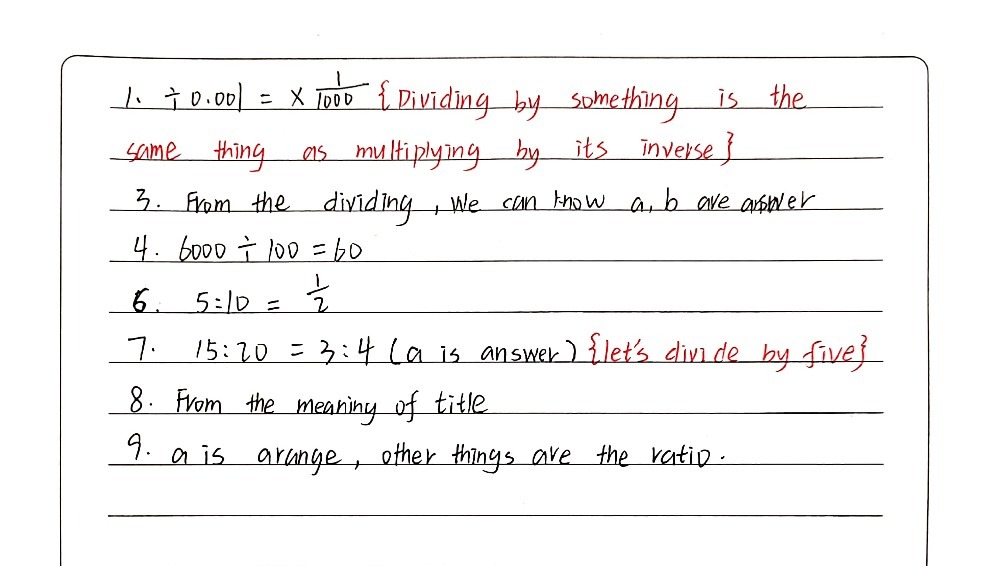 1. ÷ 0.001 = × 1/1000 {Dividing by something is the
same thing as multiplying by its inverse}
3. From the dividing, we can know a, b are answer
4. 6000 ÷ 100 = 60
6. 5:10 = 1/2
7. 15:20 = 3:4 (a is answer) {let's divide by five}
8. From the meaning of title
9. a is arange, other things are the ratio.